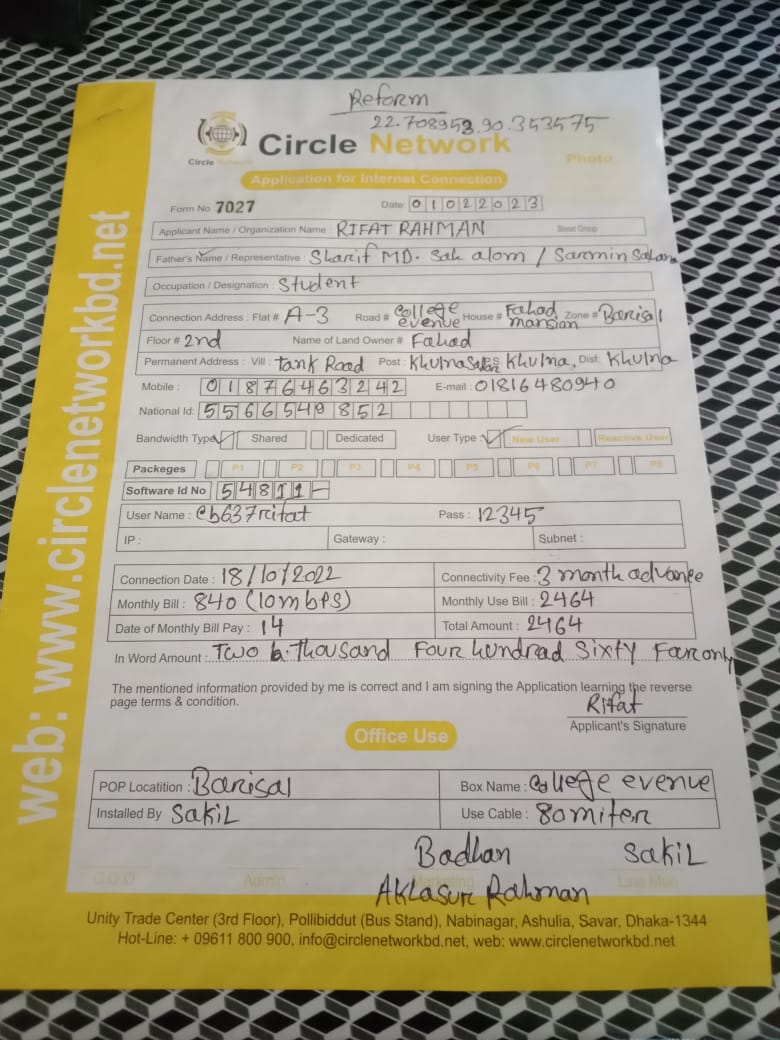 Reform
22.708953,90.353575
Circle Network
Circle Network
Photo
Application for Internet Connection
Form No 7027 Date: 01022023
Applicant Name / Organization Name : RIFAT RAHMAN Blood Group
Father's Name / Representative : Sharif MD. Sah alom / Sarmin
Occupation / Designation : Student
Connection Address : Flat # A-3 Road # College evenue House # Fahad mansian Zone # Barisal
Floor # 2nd Name of Land Owner # Fahad
Permanent Address : Vill : Tank Road Post : Khulna Khulna, Dist: Khulna
Mobile : 01876463242 E-mail : 01816480940
National Id: 5566549852
Bandwidth Type Shared Dedicated User Type : New User Reactive User
Packeges P1 P2 P3 P4 P5 P6 P7 P8
Software Id No 54811-
User Name : cb637rifat Pass : 12345
IP : Gateway : Subnet :
Connection Date : 18/10/2022 Connectivity Fee : 3 month advance
Monthly Bill : 840 (10mbps) Monthly Use Bill : 2464
Date of Monthly Bill Pay : 14 Total Amount : 2464
In Word Amount : Two thousand Four hundrad Sixty Four only
The mentioned information provided by me is correct and I am signing the Application learning the reverse
page terms & condition.
Rifat
Applicant's Signature
Office Use
POP Locatition : Barisal Box Name : College evenue
Installed By Sakil Use Cable : 80 miter
Badhan Sakil
C.O.O Admin Marketing Line Man
Aklasur Rahman
Unity Trade Center (3rd Floor), Pollibiddut (Bus Stand), Nabinagar, Ashulia, Savar, Dhaka-1344
Hot-Line: + 09611 800 900, info@circlenetworkbd.net, web: www.circlenetworkbd.net
web: www.circlenetworkbd.net